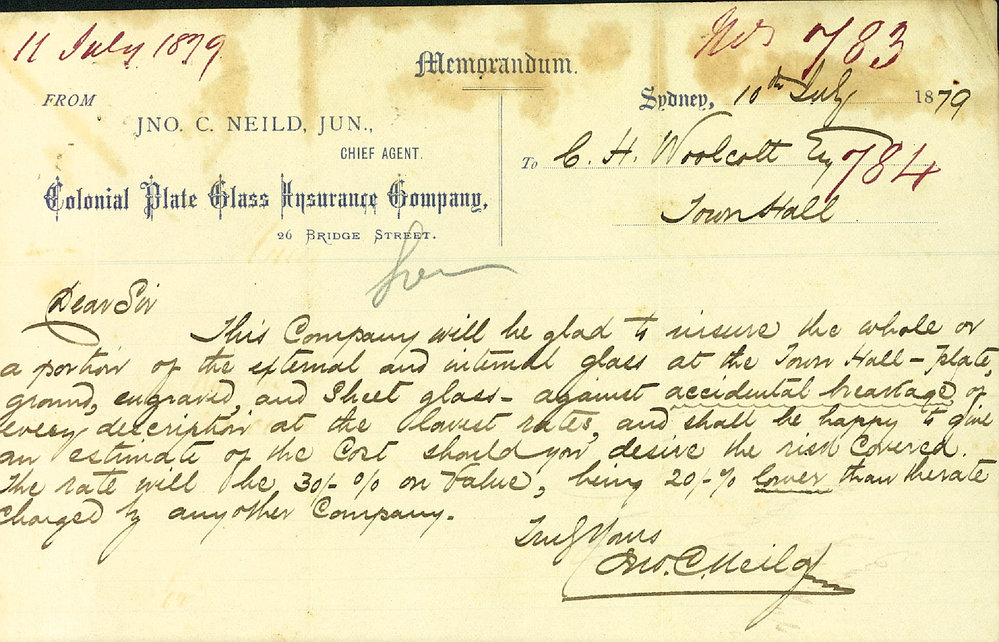 11 July 1879
No 783
Memorandum.
FROM
JNO. C. NEILD, JUN.,
CHIEF AGENT.
Colonial Plate Glass Insurance Company,
26 BRIDGE STREET.
Sydney, 10th July 1879
To C. H. Woolcott Esq
784
Town Hall
Dear Sir
This Company will be glad to insure the whole or
a portion of the external and internal glass at the Town Hall - plate,
ground, engraved, and Sheet glass - against accidental breakage of
every description at the lowest rates, and shall be happy to give
an estimate of the Cost should you desire the risk Covered.
The rate will be 30/- % on Value, being 20/- % lower than the rate
charged by any other Company.
Truly Yours
Jno. C. Neild